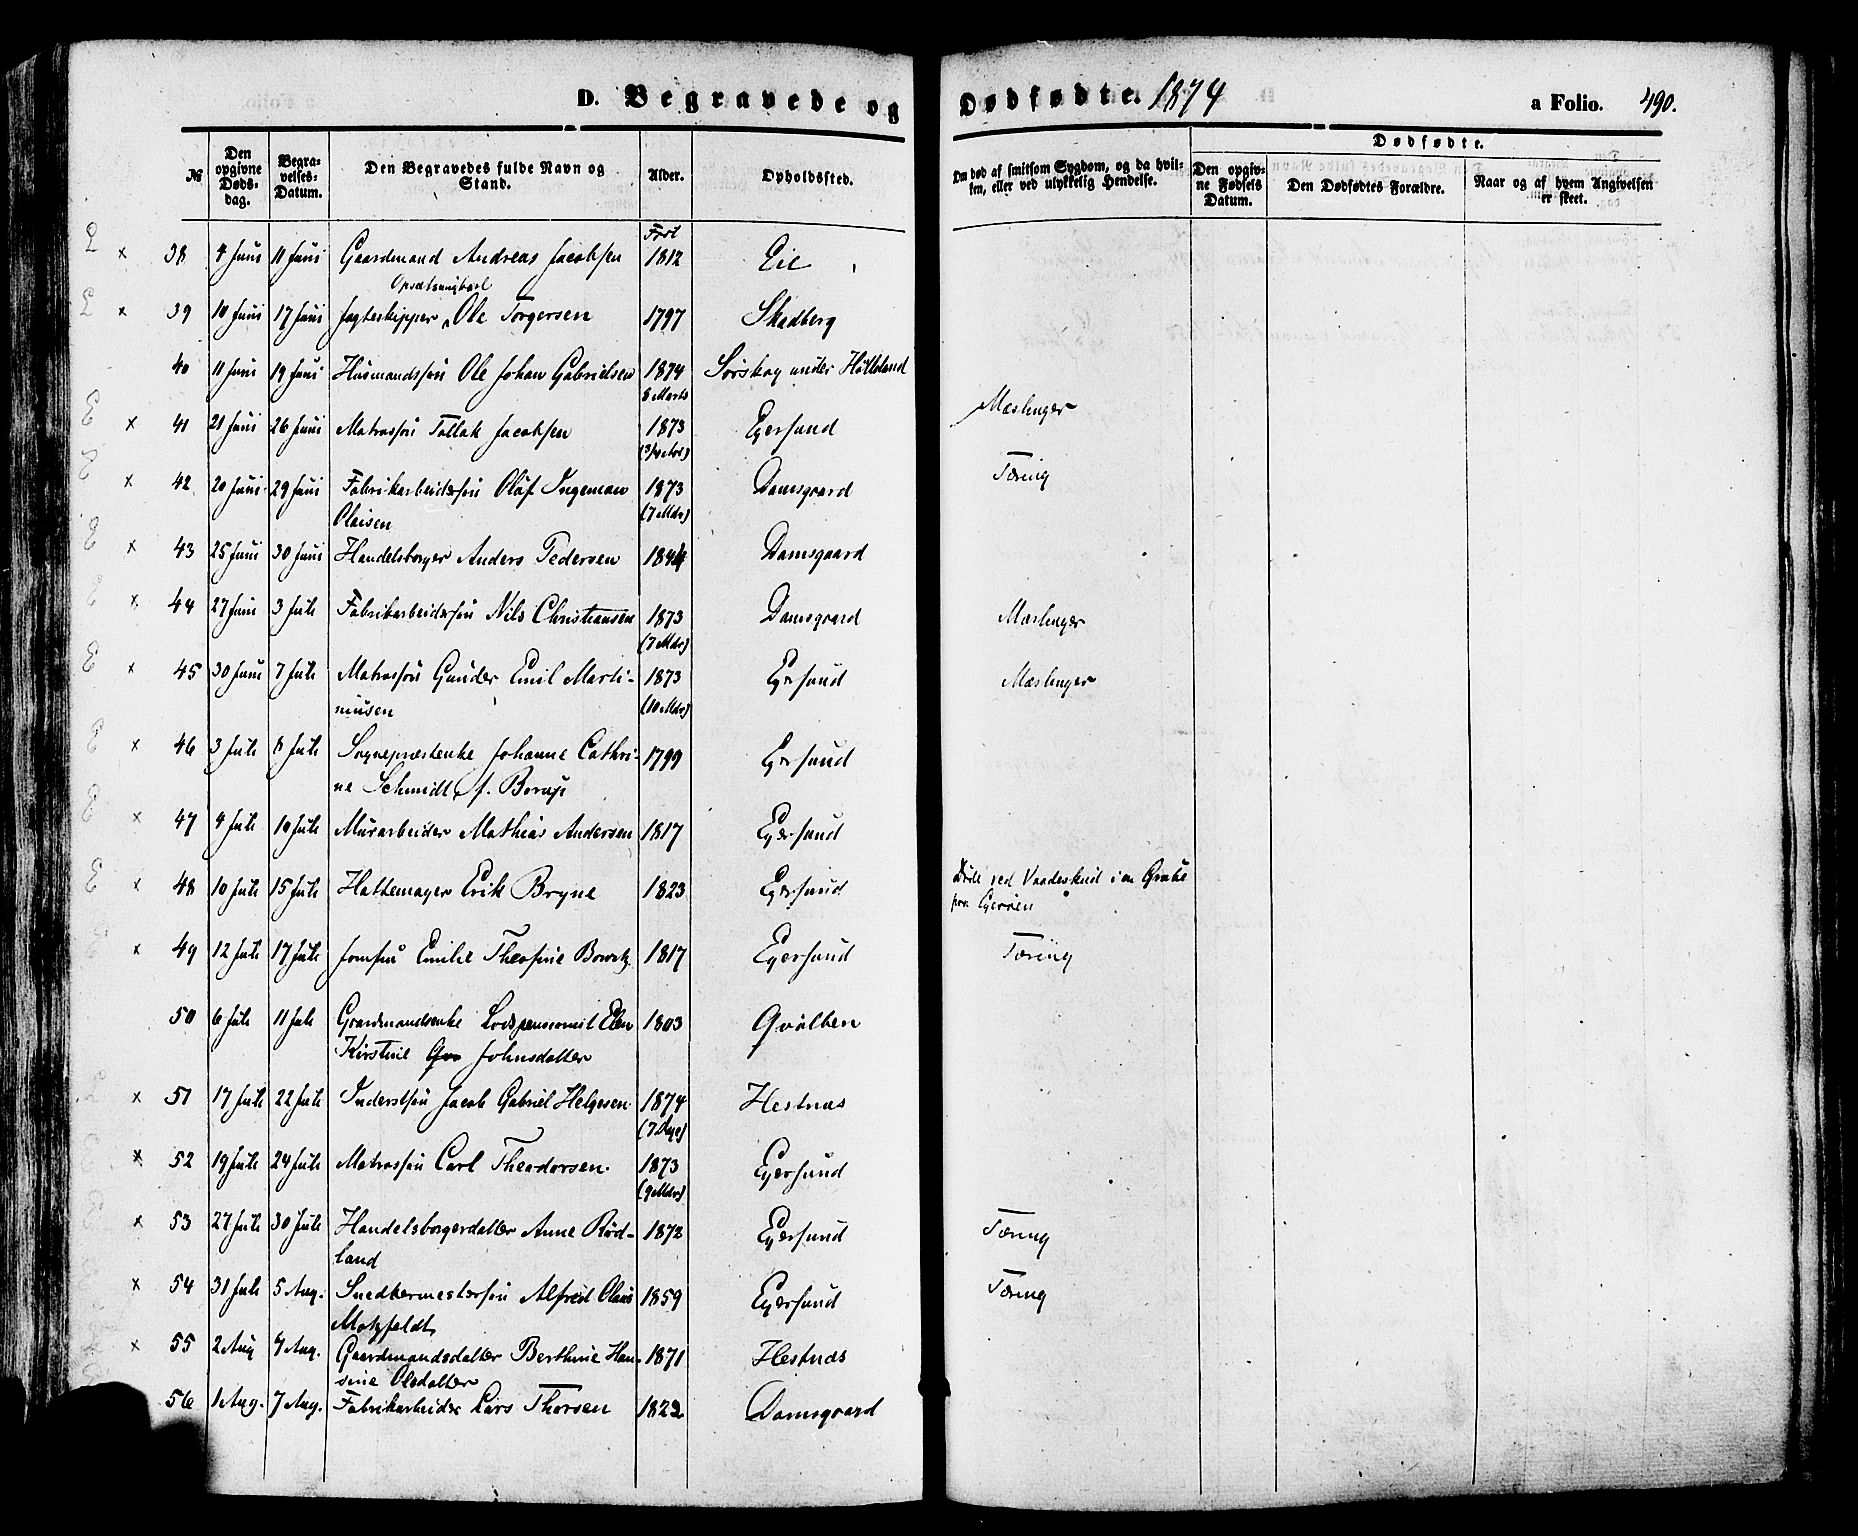 D. Begravede og Dødfødte. 1874 a Folio. 490.
Dødfødte.
№ Den opgivne Døds-dag. Begra-velses-Datum. Den Begravedes fulde Navn og Stand. Alder. Opholdssted. Om død af smitsom Sygdom, og da hvil-ken, eller ved ulykkelig Hendelse. Den opgiv-ne Fødsels Datum. Den Dødfødtes Forældre. Naar og af hvem Angivelsen er skeet.
× 38 4 Juni 11 Juni Gaardmand Andreas Jacobsen 1812 Eie
× 39 10 Juni 17 Juni Jagteskipper Ole Torgersen 1797 Skadberg
40 11 Juni 19 Juni Husmandssøn Ole Johan Gabrielsen 1874 Sørskog under Hølleland
8 Marts
× 41 21 Juni 26 Juni Matrossøn Tollak Jacobsen 1873 Egersund Mæslinger
(3/4 Aar)
× 42 20 Juni 29 Juni Fabrikarbeidersøn Oluf Ingeman 1873 Damsgaard Tæring
Olaisen (7 Mdr)
× 43 25 Juni 30 Juni Handelsborger Anders Pedersen 1844 Damsgaard
× 44 27 Juni 3 Juli Fabrikarbeidersøn Nils Christiansen 1873 Damsgaard Mæslinger
(7 Mdr)
× 45 30 Juni 7 Juli Matrossøn Gunder Emil Marti- 1873 Egersund Mæslinger
niusen (10 Mdr)
× 46 3 Juli 8 Juli Sognepræstenke Johanne Cathri- 1799 Egersund
ne Schmidt f. Borup
× 47 4 Juli 10 Juli Murarbeider Mathias Andersen 1817 Egersund
× 48 10 Juli 15 Juli Hattemager Erik Bryne 1823 Egersund Døde ved Vaadeskud i en Grube
paa Egerøen
× 49 12 Juli 17 Juli Jomfru Emilie Theosine 1817 Egersund Tæring
50 6 Juli 11 Juli Gaardmandsenke Lodspensionist Elen 1803 Qvalben
Kirstine Johnsdatter
× 51 17 Juli 22 Juli Inderstsøn Jacob Gabriel Helgesen 1874 Hestnæs
(7 Dage)
× 52 19 Juli 24 Juli Matrossøn Carl Theodorsen. 1873 Egersund
(9 Mdr)
× 53 27 Juli 30 Juli Handelsborgerdatter Anne Rød- 1872 Egersund Tæring
land
× 54 31 Juli 5 Aug. Snedkermestersøn Alfred Olaus 1859 Egersund Tæring
Motzfeldt
× 55 2 Aug 4 Aug. Gaardmandsdatter Berthine Han- 1871 Hestnæs
sine Olsdatter
56 1 Aug. 7 Aug. Fabrikarbeider Lars Thorsen 1822 Damsgaard